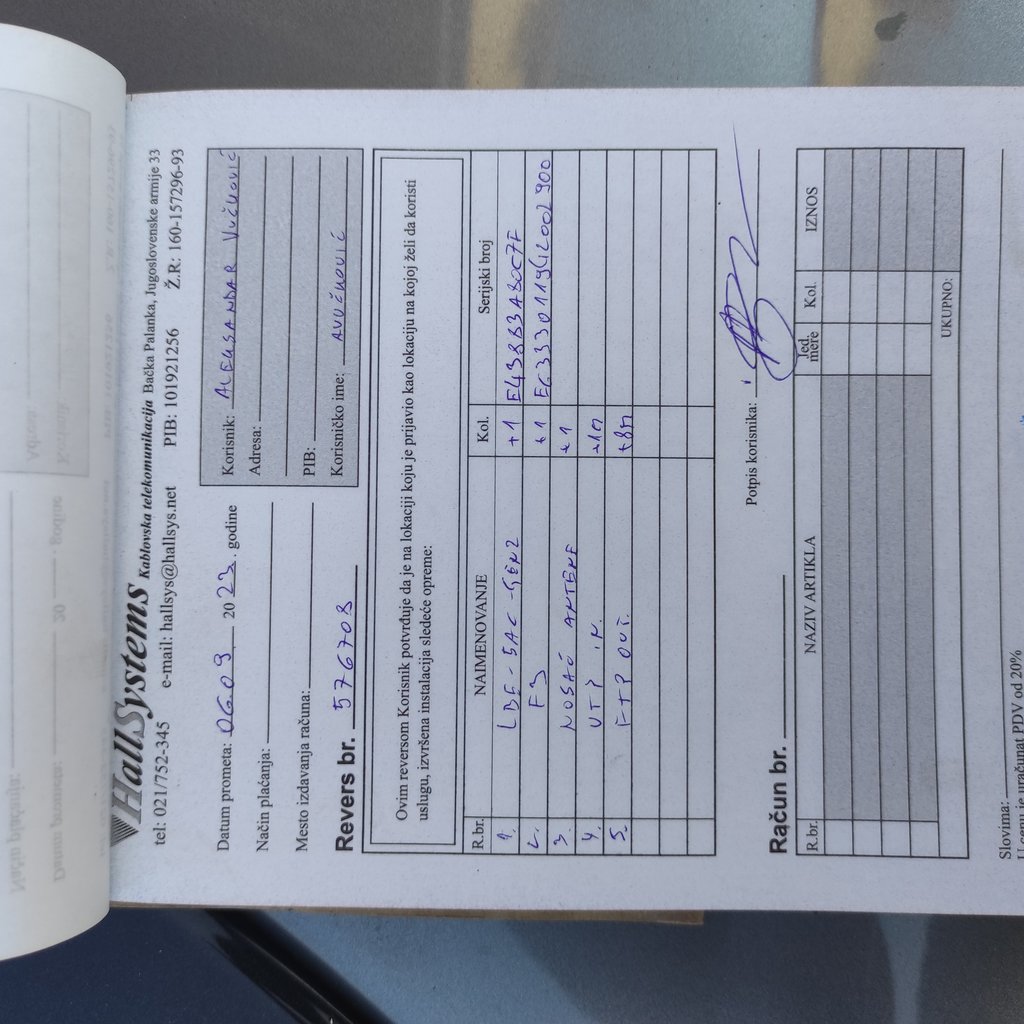 HallSystems Kablovska telekomunikacija Bačka Palanka, Jugoslovenske armije 33
tel: 021/752-345 e-mail: hallsys@hallsys.net PIB: 101921256 Ž.R: 160-157296-93
Datum prometa: 06.09 20 23. godine
Način plaćanja:
Mesto izdavanja računa:
Revers br. 576708
Korisnik: ALEKSANDAR VUČKOVIĆ
Adresa:
PIB:
Korisničko ime: AVUČKOVIĆ
Ovim reversom Korisnik potvrđuje da je na lokaciji koju je prijavio kao lokaciju na kojoj želi da koristi
uslugu, izvršena instalacija sledeće opreme:
R.br. NAIMENOVANJE Kol. Serijski broj
1. LBE-5AC-GEN2 +1 E43883A80C7F
2. F3 +1
3. NOSAČ ANTENE +1
4. UTP +1m
5. FTP OUT. +8m
Potpis korisnika:
Račun br.
R.br. NAZIV ARTIKLA Jed. mere Kol. IZNOS
UKUPNO:
Slovima:
U cenu je uračunat PDV od 20%